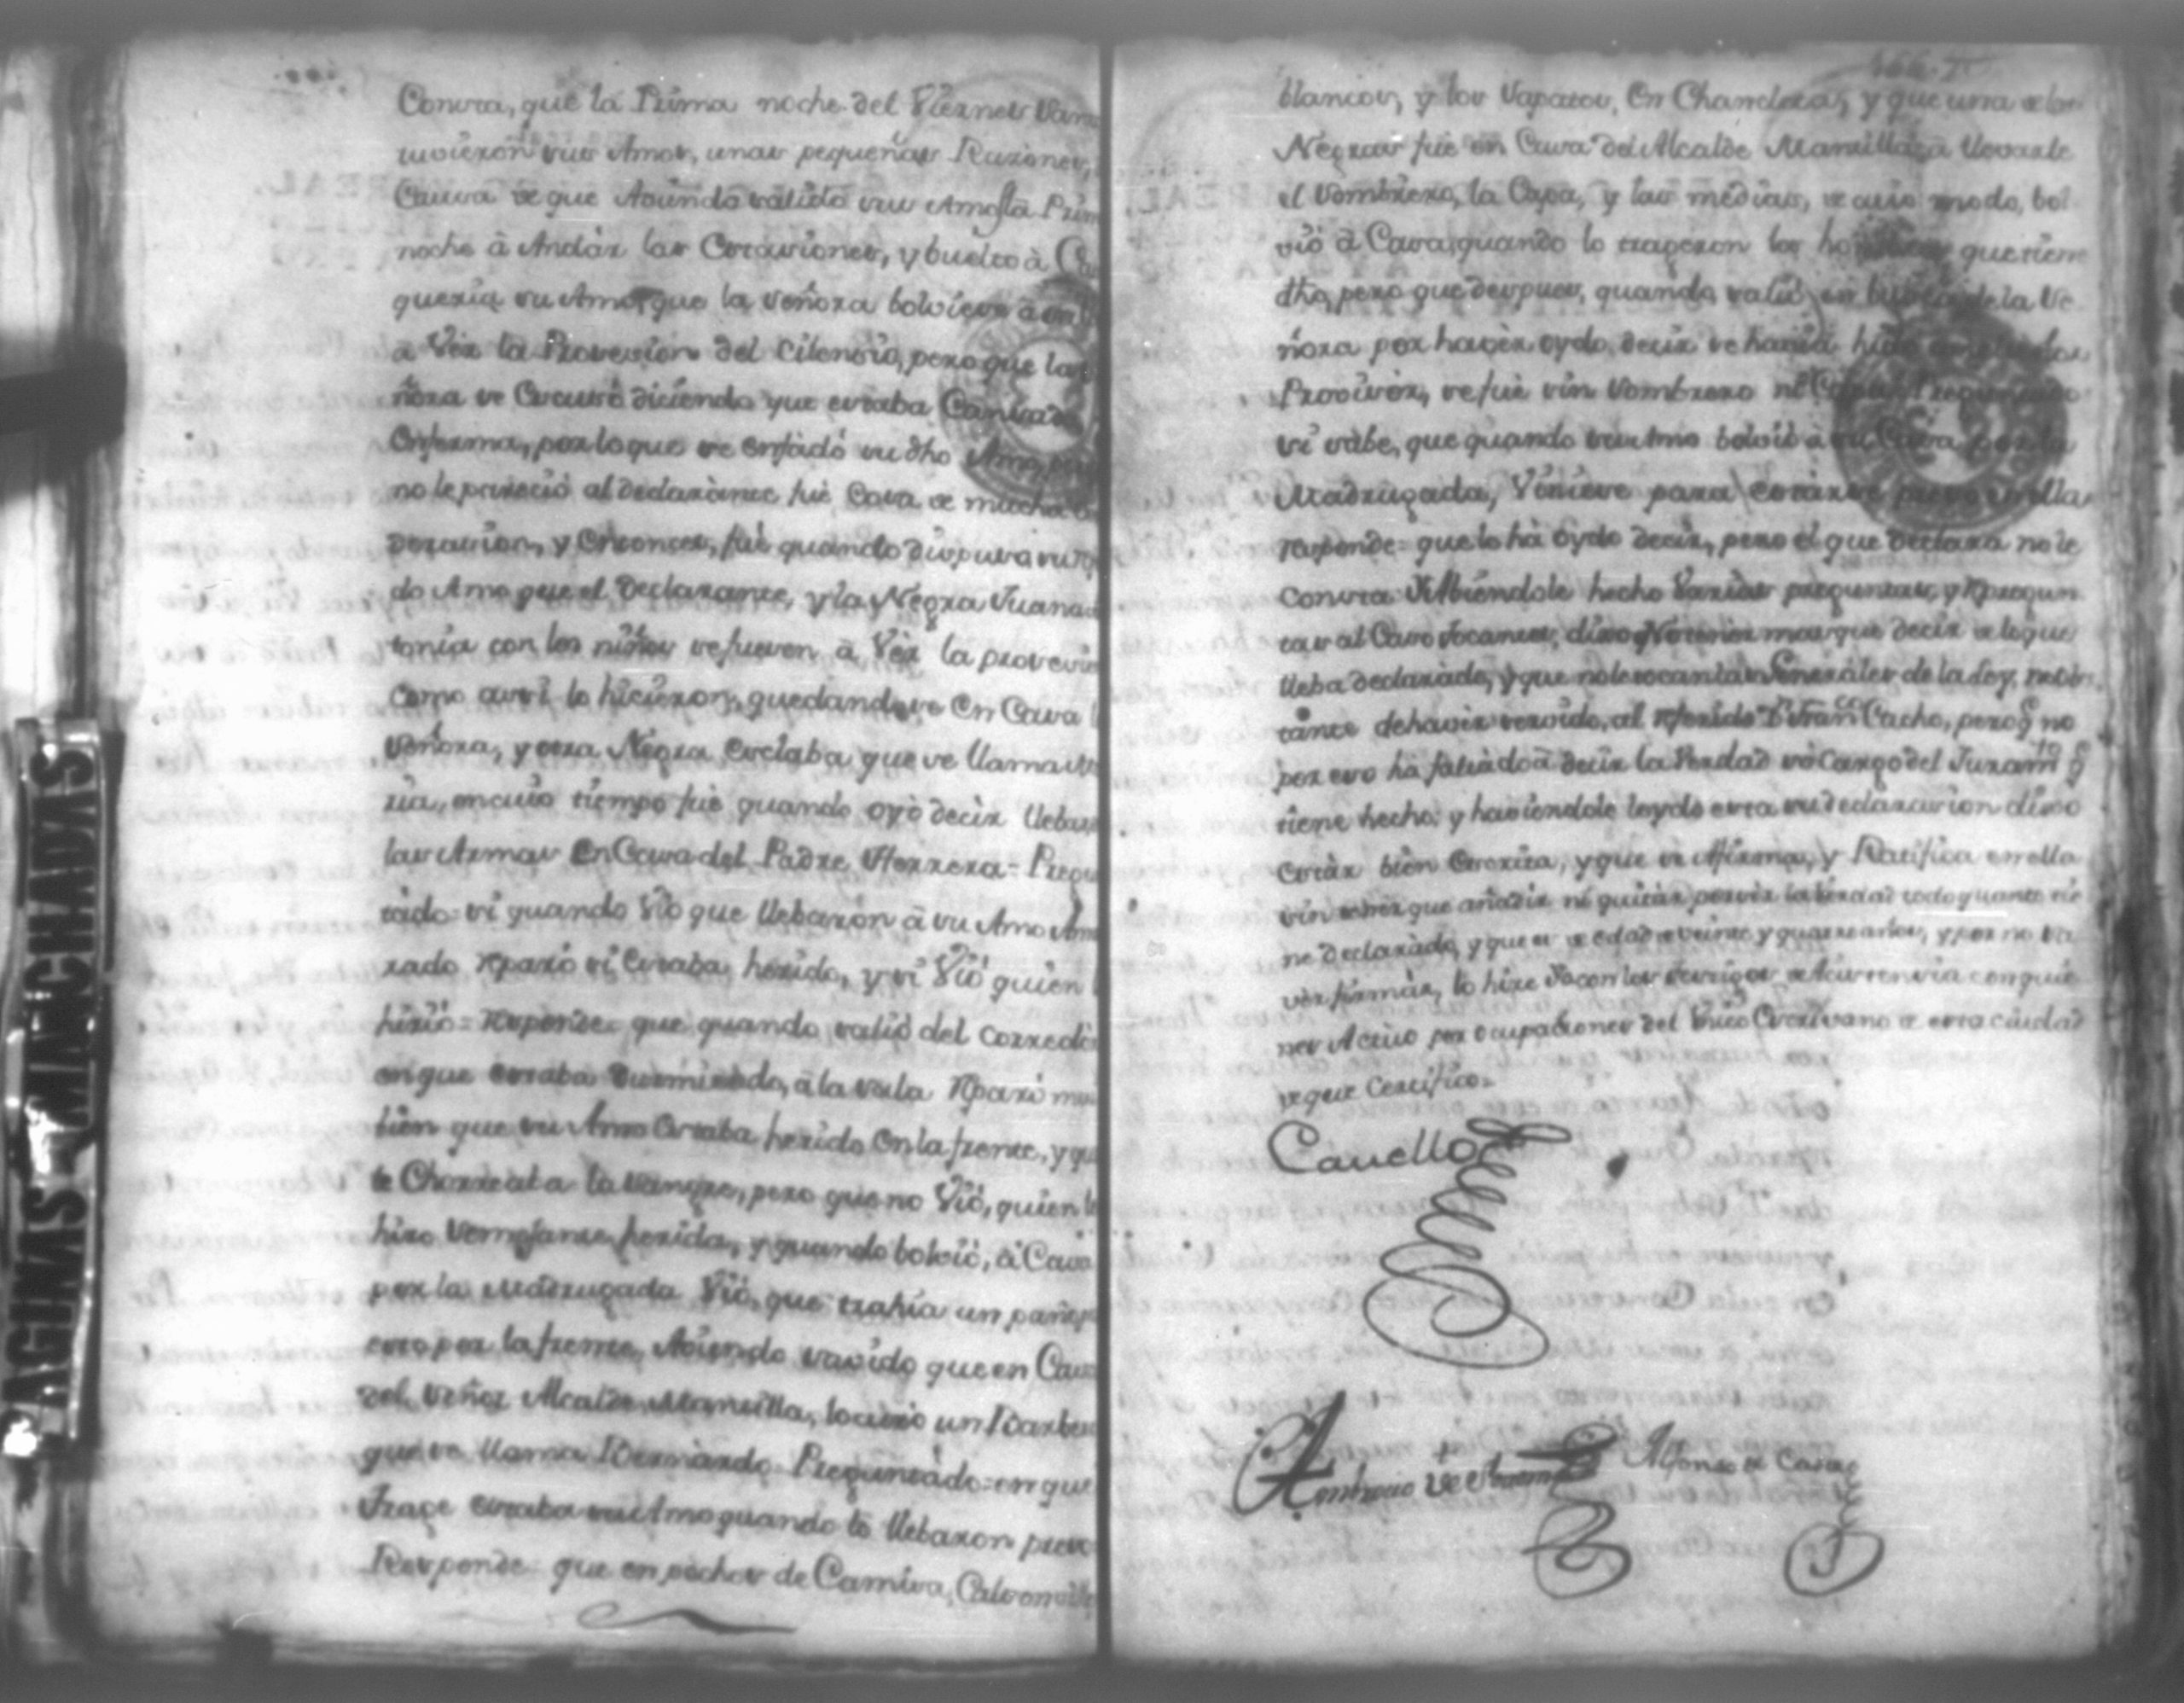 Consta, que la Prima noche del Viernes San
tuvieron sus Amos, unas pequeñas Razones,
Causa de que Aviendo salido su Amo la Prim
noche â Andàr las Estasiones, y buelto â Ca
queria su Amo, que la señora bolviese â
â Ver la Prosesion del silensio, pero que la
ñora se Escusò diciendo que estaba Cansada
Enferma, por lo que se enfadó su dho Amo,
no le pareciò al declarànte fuè Cosa de mucha
derasion, y Entonces, fuè quando dispuso su
do Amo que el Declarante, y la Negra Juana
tonia con los niños se fuesen â Vèr la prosesio
como assi lo hicieron, quedandose En Casa l
señora, y otra Negra Esclaba que se llama
ria, en cuio tiempo fuè quando oyò decir llebar
las Armas En Casa del Padre Herrera = Pregu
tàdo = si quando Vio que llebaron â su Amo Am
rado reparò si Estaba herido, y si Viò quien l
hirió = Responde = que quando salió del corredòr
en que estaba durmiendo, â la sala reparò mui
bien que su Amo Estaba herido En la frente, y que
le Chorreaba la sangre, pero que no Viò, quien le
hiso semejante herida, y quando bolviò, â Casa
por la Madrugada Viò, que trahia un pañ
esto por la frente, Aviendo savido que en Casa
del señor Alcalde Mansilla, lo curò un Barber
que se llama Bernardo = Preguntàdo = en que
Trage estaba su Amo quando lo llebaron preso
Responde = que en pechos de Camisa, Calson
blancos, y los sapatos, En Chancleta, y que una de las
Negras fuè en Casa del Alcalde Mansilla â llevarle
el sombrero, la Capa, y las mèdias, de cuio modo, bol
viò â Casa quando lo trageron los hombres que tiene
dho, pero que despues, quando saliò en busca de la Se
ñora por havèr oydo, decir se havia hido
Provisòr, se fuè sin sombrero ni Capa = Preguntado
si sabe, que quando su Amo bolviò â su Casa por la
Madrugada, Viniese para estarse preso en ella
responde = que lo hà oydo decir, pero el que declara no le
Consta Y Abiendole hecho Varias preguntas, y repregun
tas al Caso tocantes, dixo No tener mas que decir de lo que
lleba declaràdo, y que no le tocan las Generàles de la Ley, no obs
tànte de havèr servido, al referido Dn Franco Cacho, pero q no
por eso hà faltàdo â decir la Verdad so Cargo del Juramto q
tiene hecho; y haviendole leydo esta su declarasion dixo
Estàr bien Escrita, y que se Afirma, y Ratifica en ella
sin tener que añadir ni quitàr por sèr la Verdad todo quanto tie
ne declaràdo, y que es de edad de veinte y quatro años, y por no sa
vèr firmàr, lo hize Yo con los testigos de Asistensia con quie
nes Actùo por ocupasiones del Unico Escrivano de esta ciudad
de que Certifico =
Cauello
Ambrosio de
Alfonso de Casa
PAGINAS MANCHADAS